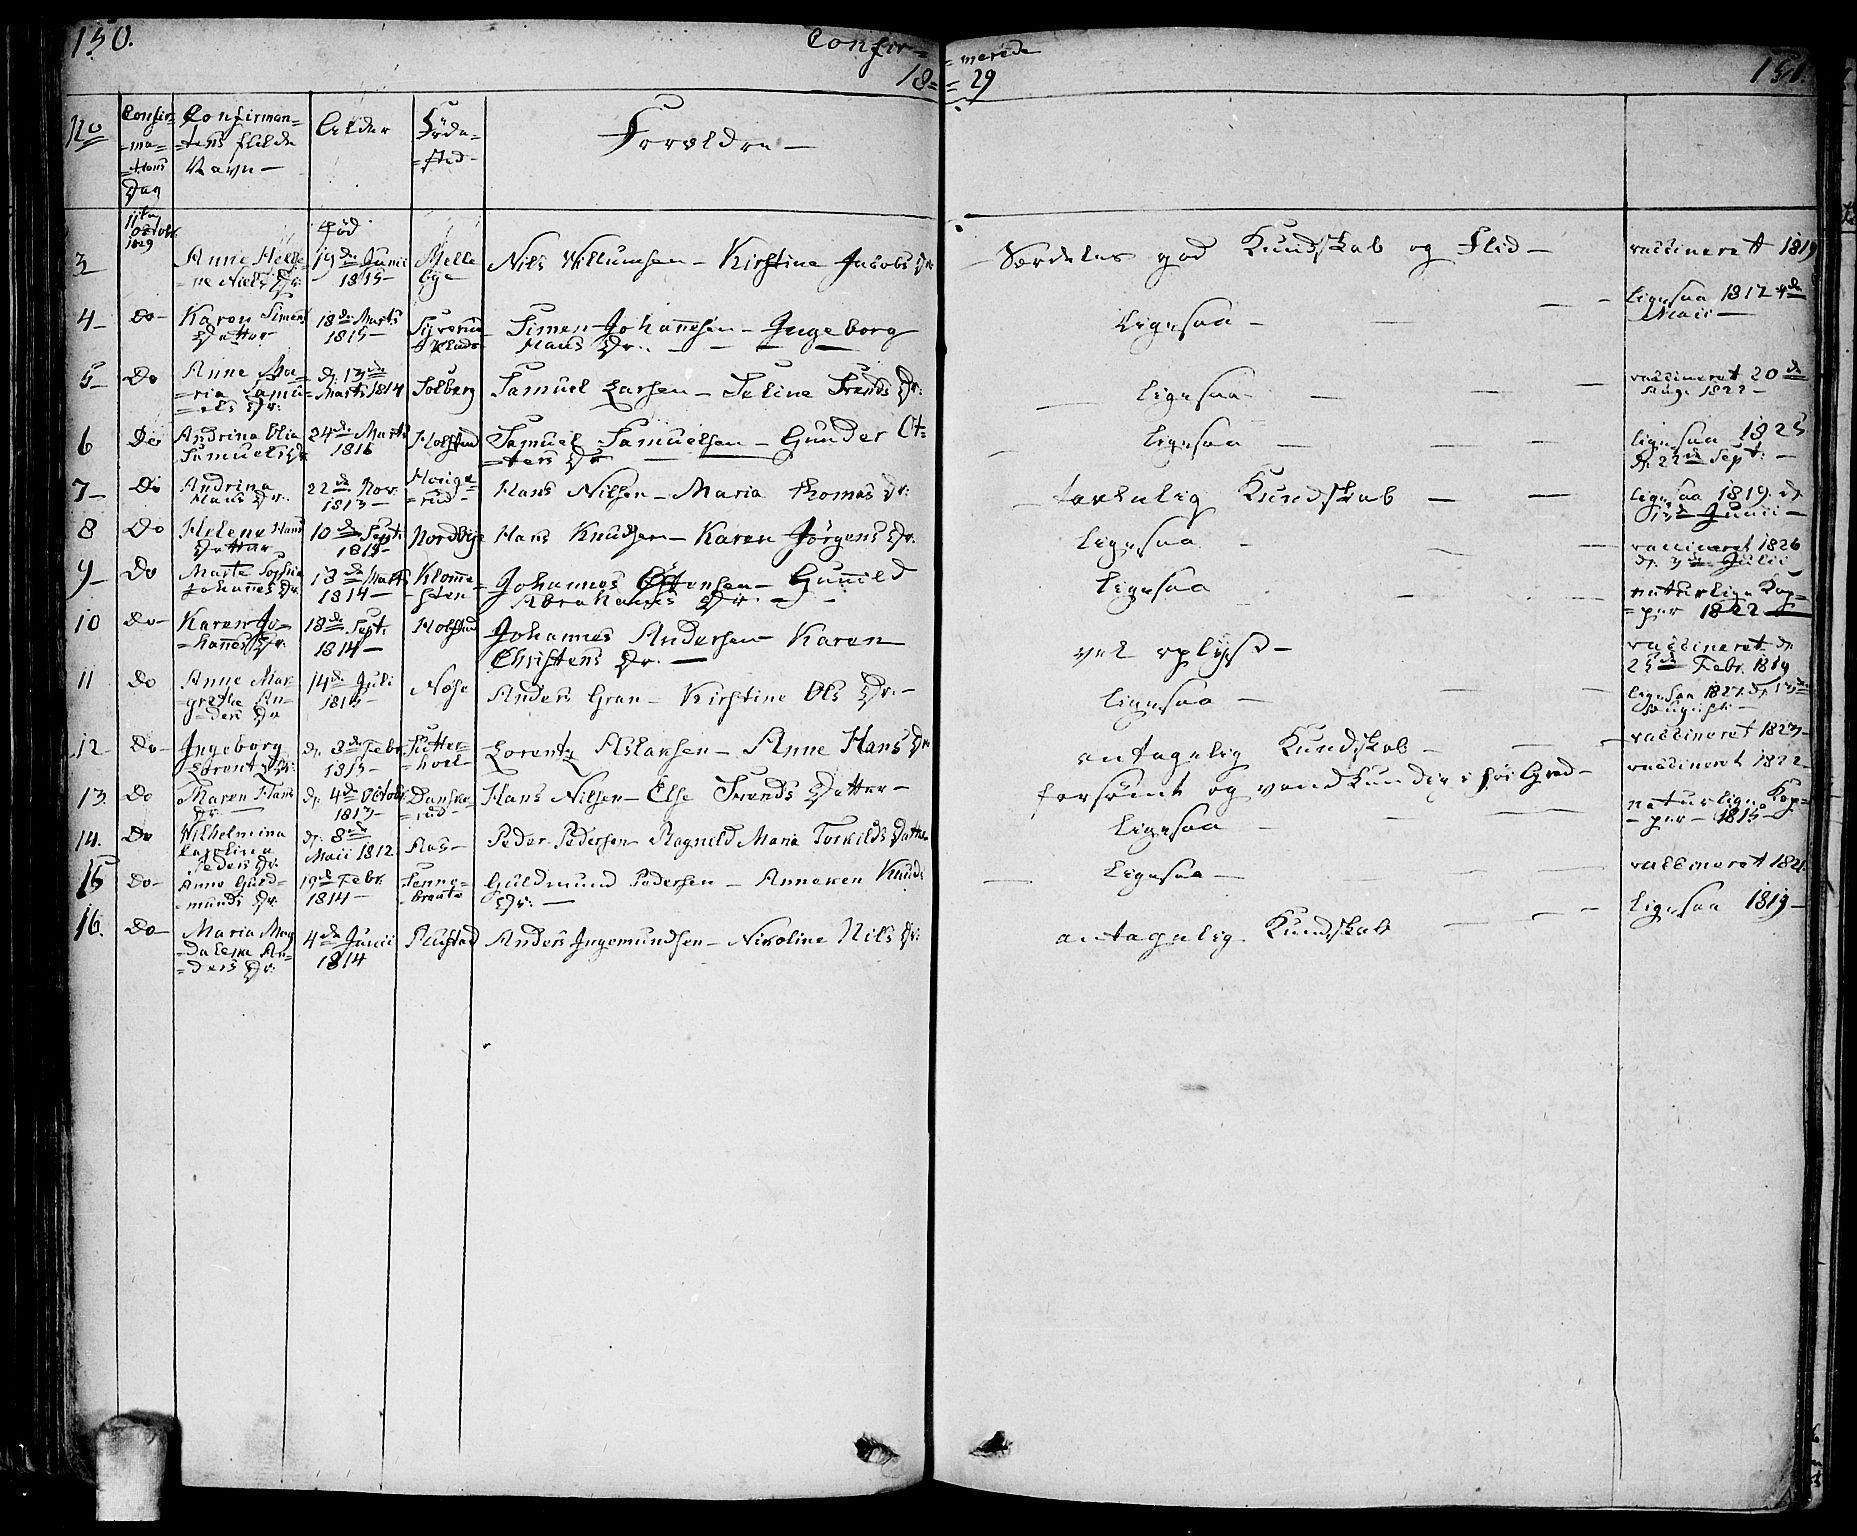 150.
Confir-
= merede
151.
18=
= 29
No
Confir=
=ma=
=tions
Dag
Confirman=
=tens fulde
Navn -
Alder
Föde=
=sted -
Forældre -
11te
October
1829
Född
3
Anne Hele=
=ne Niels Dr.
19de Junii
1815
Melle
bye
Nils Willumsen - Kirstine Jacobs Dr
Særdeles god Kundskab og Flid -
vaccineret 1819
4-
do-
Karen Simens
Datter
18de Marts
1815
Simen Johannesen - Ingeborg
Hans Dr. -
Ligesaa -
ligesaa 1817 4de
Maii -
5-
Do
Anne Ma=
=ria Samu=
=els Dr:
d. 13de
Marts 1814
Solberg
Samuel Larsen - Seline Trends Dr:
Ligesaa -
vaccineret 20de
1822 -
6
Do
Andrina Olia
Samuels Dr
24de Marts
1816
Holstad
Samuel Samuelsen - Gunder Ot=
=ters Dr
Ligesaa -
ligesaa 1825
d. 22de Sept: -
7-
Do
Andrina
Hans Dr.
22de Nov.
1813 -
Houge=
=rud -
Hans Nilsen - Maria Thomas Dr:
taalelig Kundskab -
ligesaa 1819. d.
13de Junii -
8
Do
Helene Hans
Datter
10de Sept.
1815 -
Nordbye
Hans Knudsen - Karen Jörgens Dr.
Ligesaa -
vaccineret 1826
d. 3de Julii
9-
Do
Marte Sophia
Johannes Dr.
13de Marts
1814 -
Klomme=
=sten -
Johannes Ottensen - Gunild
Abrahams Dr. -
Ligesaa
naturlige Kop=
=per 1822
10
do-
Karen Jo=
=hannes Dr.
18de Sept.
1814 -
Holstad
Johannes Andersen - Karen
Christens Dr. -
vel oplyst -
vaccineret d.
25de Febr. 1819
11
do
Anne Mar=
=grethe An=
=ders Dr
14de Juli
1815 -
Nose
Anders Gran - Kirstine Ols Dr. -
Ligesaa -
ligesaa 1827. d. 13de
Augusti -
12-
Do-
Ingeborg
Lorentz Dr.
d. 3de Febr.
1815 -
Lorentz Aslansen - Anne Hans Dr
antagelig Kundskab -
vaccineret 1823 -
13.
do
Maren Hans
Dr. -
d. 4de Octobr
1813 -
Danske=
=rud -
Hans Nilsen - Else Trends Datter -
forsömt og vandkundig i höi Grad -
vaccineret 1822 -
14.
Do
Wilhelmina
Carolina
Peders Dr.
d. 8de
Maii 1812
Aas -
Peder Pedersen - Ragnild Maria Torkilds Datter
Ligesaa -
naturlige Kop=
=per - 1815 -
15
do-
Anne Guld=
=munds Dr.
19de Febr.
1814 -
Senne=
=braate
Guldmund Pedersen - Anneken Knuds
Dr: -
Ligesaa -
vaccineret 1821
16.
Do-
Maria Mag
=dalena An=
=ders Dr.
4de Junii
1814
Rustad
Anders Ingemundsen - Nicoline Nils Dr:
antagelig Kundskab
ligesaa 1819 -